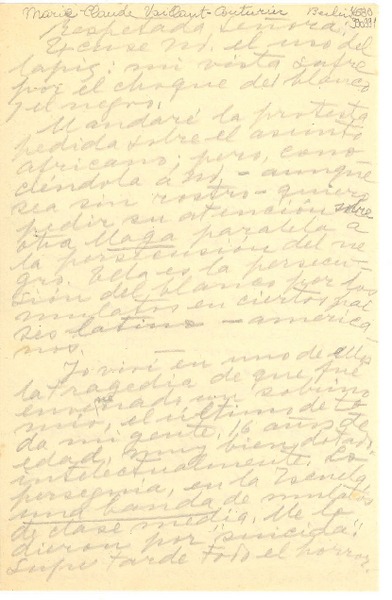 Marie-Claude Vaillant-Couturier Berlin
Respetada señora:
Excuse Ud. el uso del
lapiz: mi vista sufre
por el choque del blanco
y el negro.
Mandaré la protesta
pedida sobre el asunto
africano; pero, cono-
ciéndola a Ud. - aunque
sea sin rostro - quiero
pedir su atención sobre
otra llaga paralela a
la persecusión del ne-
gro. Ella es la persecu-
sión del blanco por los
mulatos en ciertos paí-
ses latino-america-
nos.
Yo viví en uno de ellos
la tragedia de que fué
envenenado un sobrino
mío, el último de to-
da mi gente, 16 años de
edad, muy bien dotado
intelectualmente. Lo
perseguía, en la Escuela
una banda de mulatos
de clase media. Me lo
dieron por "suicida".
Supe tarde todo el horror